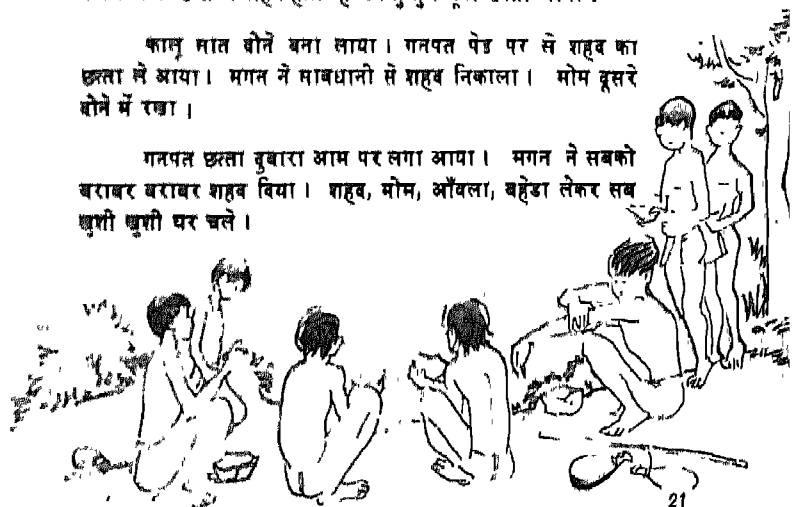 कालू सात दोने बना लाया । गनपत पेड पर से शहद का
छत्ता ले आया । मगन ने सावधानी से शहद निकाला । मोम दूसरे
दोने में रखा ।
गनपत छत्ता दुबारा आम पर लगा आया । मगन ने सबको
बराबर बराबर शहद दिया । शहद, मोम, आँवला, बहेडा लेकर सब
खुशी खुशी घर चले ।
21